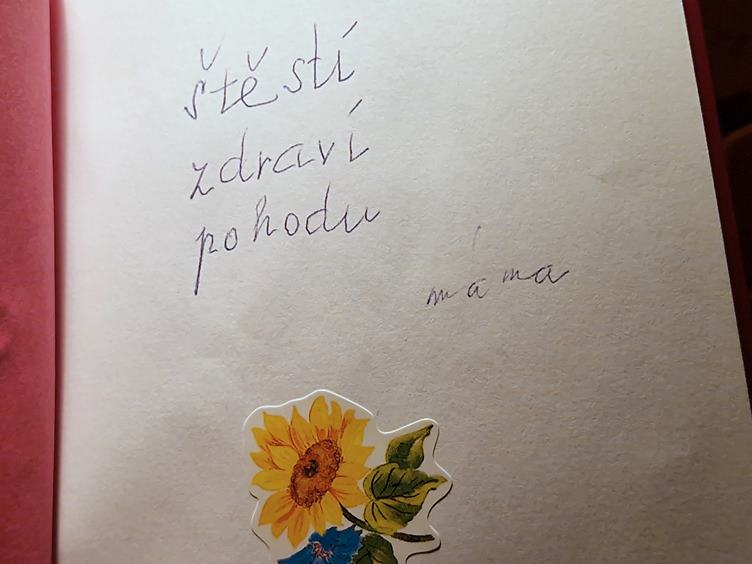 štěstí
zdraví
pohodu
máma